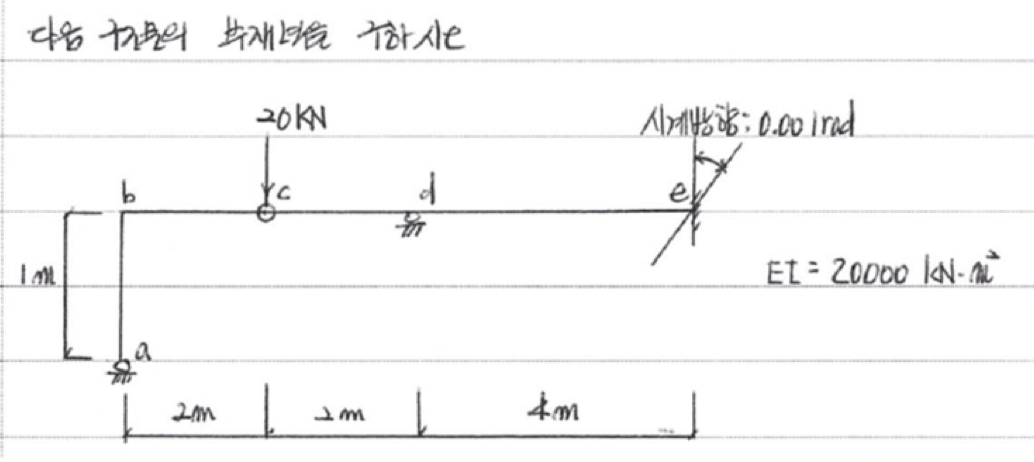 다음 구조물의 부재력을 구하시오
20KN
시계방향: 0.001rad
b
c
d
e
1m
EI = 20000 KN·m²
a
2m
2m
4m